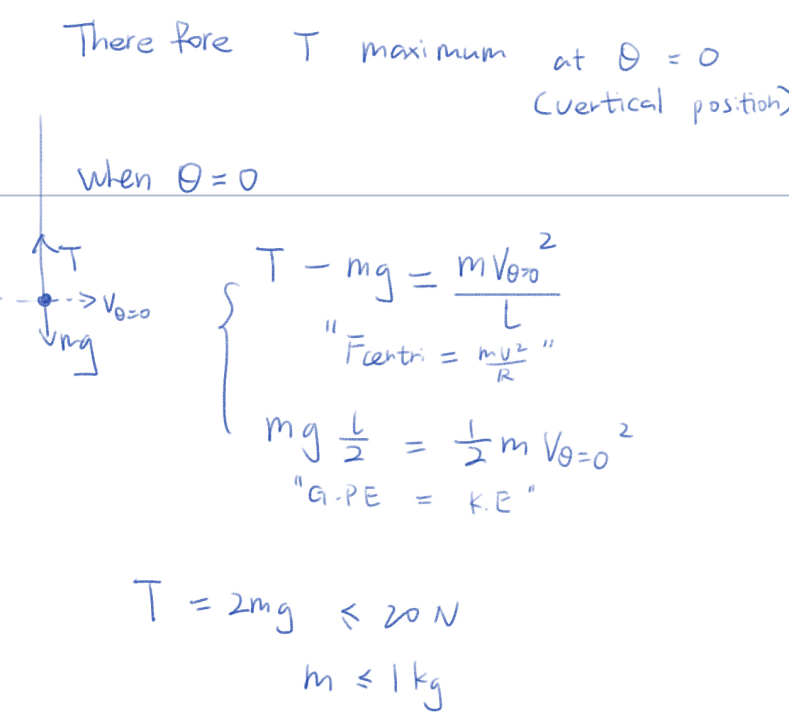 There fore T maximum at θ = 0
(vertical position)
when θ = 0
T
V_{θ=0}
mg
T - mg = \frac{m V_{θ=0}^2}{L}
"Fcentri = \frac{mv^2}{R}"
mg \frac{L}{2} = \frac{1}{2} m V_{θ=0}^2
"G.PE = K.E"
T = 2mg ≤ 20 N
m ≤ 1 kg